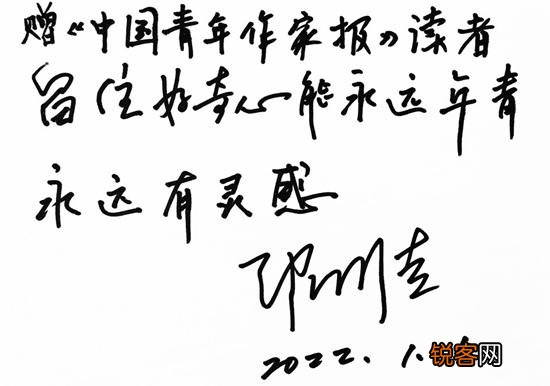 赠《中国青年作家报》读者
留住好奇心能永远年青
永远有灵感
2022.1.
锐客网